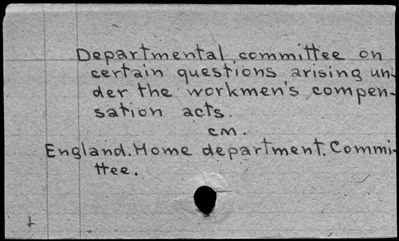 Departmental committee on
certain questions arising un-
der the workmen's compen-
sation acts.
cm.
England. Home department. Commi-
ttee.